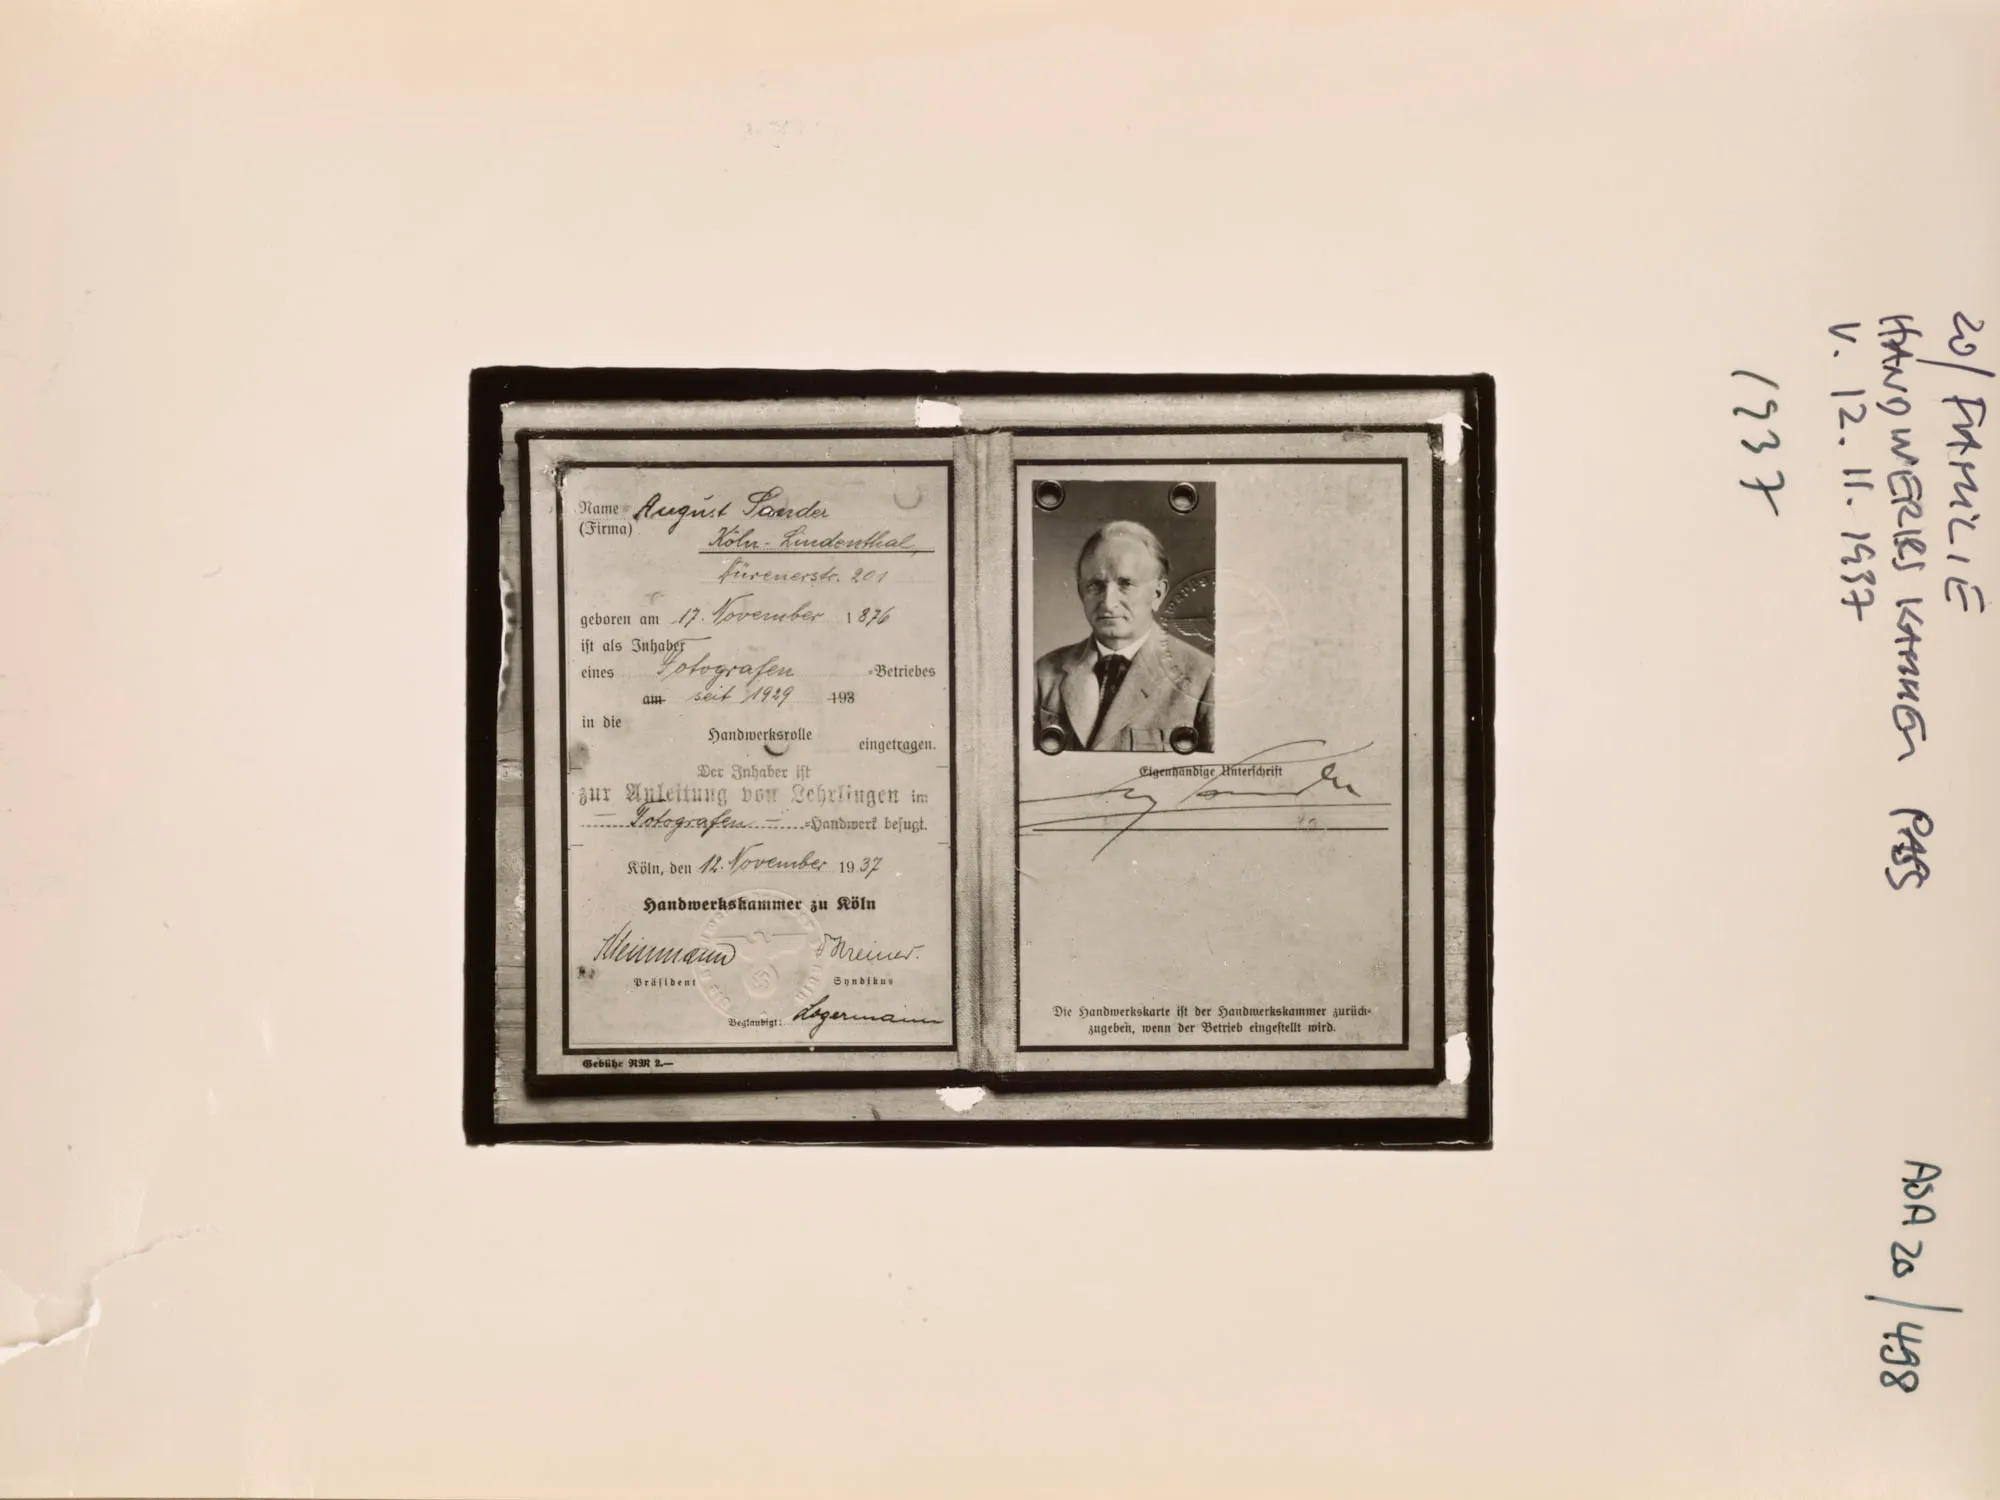 Name August Sander
(Firma)
Köln-Lindenthal,
Dürenerstr. 201
geboren am 17. November 1876
ist als Inhaber
eines Fotografen =Betriebes
am seit 1929 193
in die
Handwerksrolle
eingetragen.
Der Inhaber ist
zur Anleitung von Lehrlingen im
— Fotografen — =Handwerk befugt.
Köln, den 12. November 1937
Handwerkskammer zu Köln
Präsident
Syndikus
Beglaubigt:
Gebühr RM 2.—
Eigenhändige Unterschrift
Aug Sander
Die Handwerkskarte ist der Handwerkskammer zurück-
zugeben, wenn der Betrieb eingestellt wird.
20/FAMILIE
HANDWERKSKAMMER PASS
V. 12. 11. 1937
1937
ASA 20/498